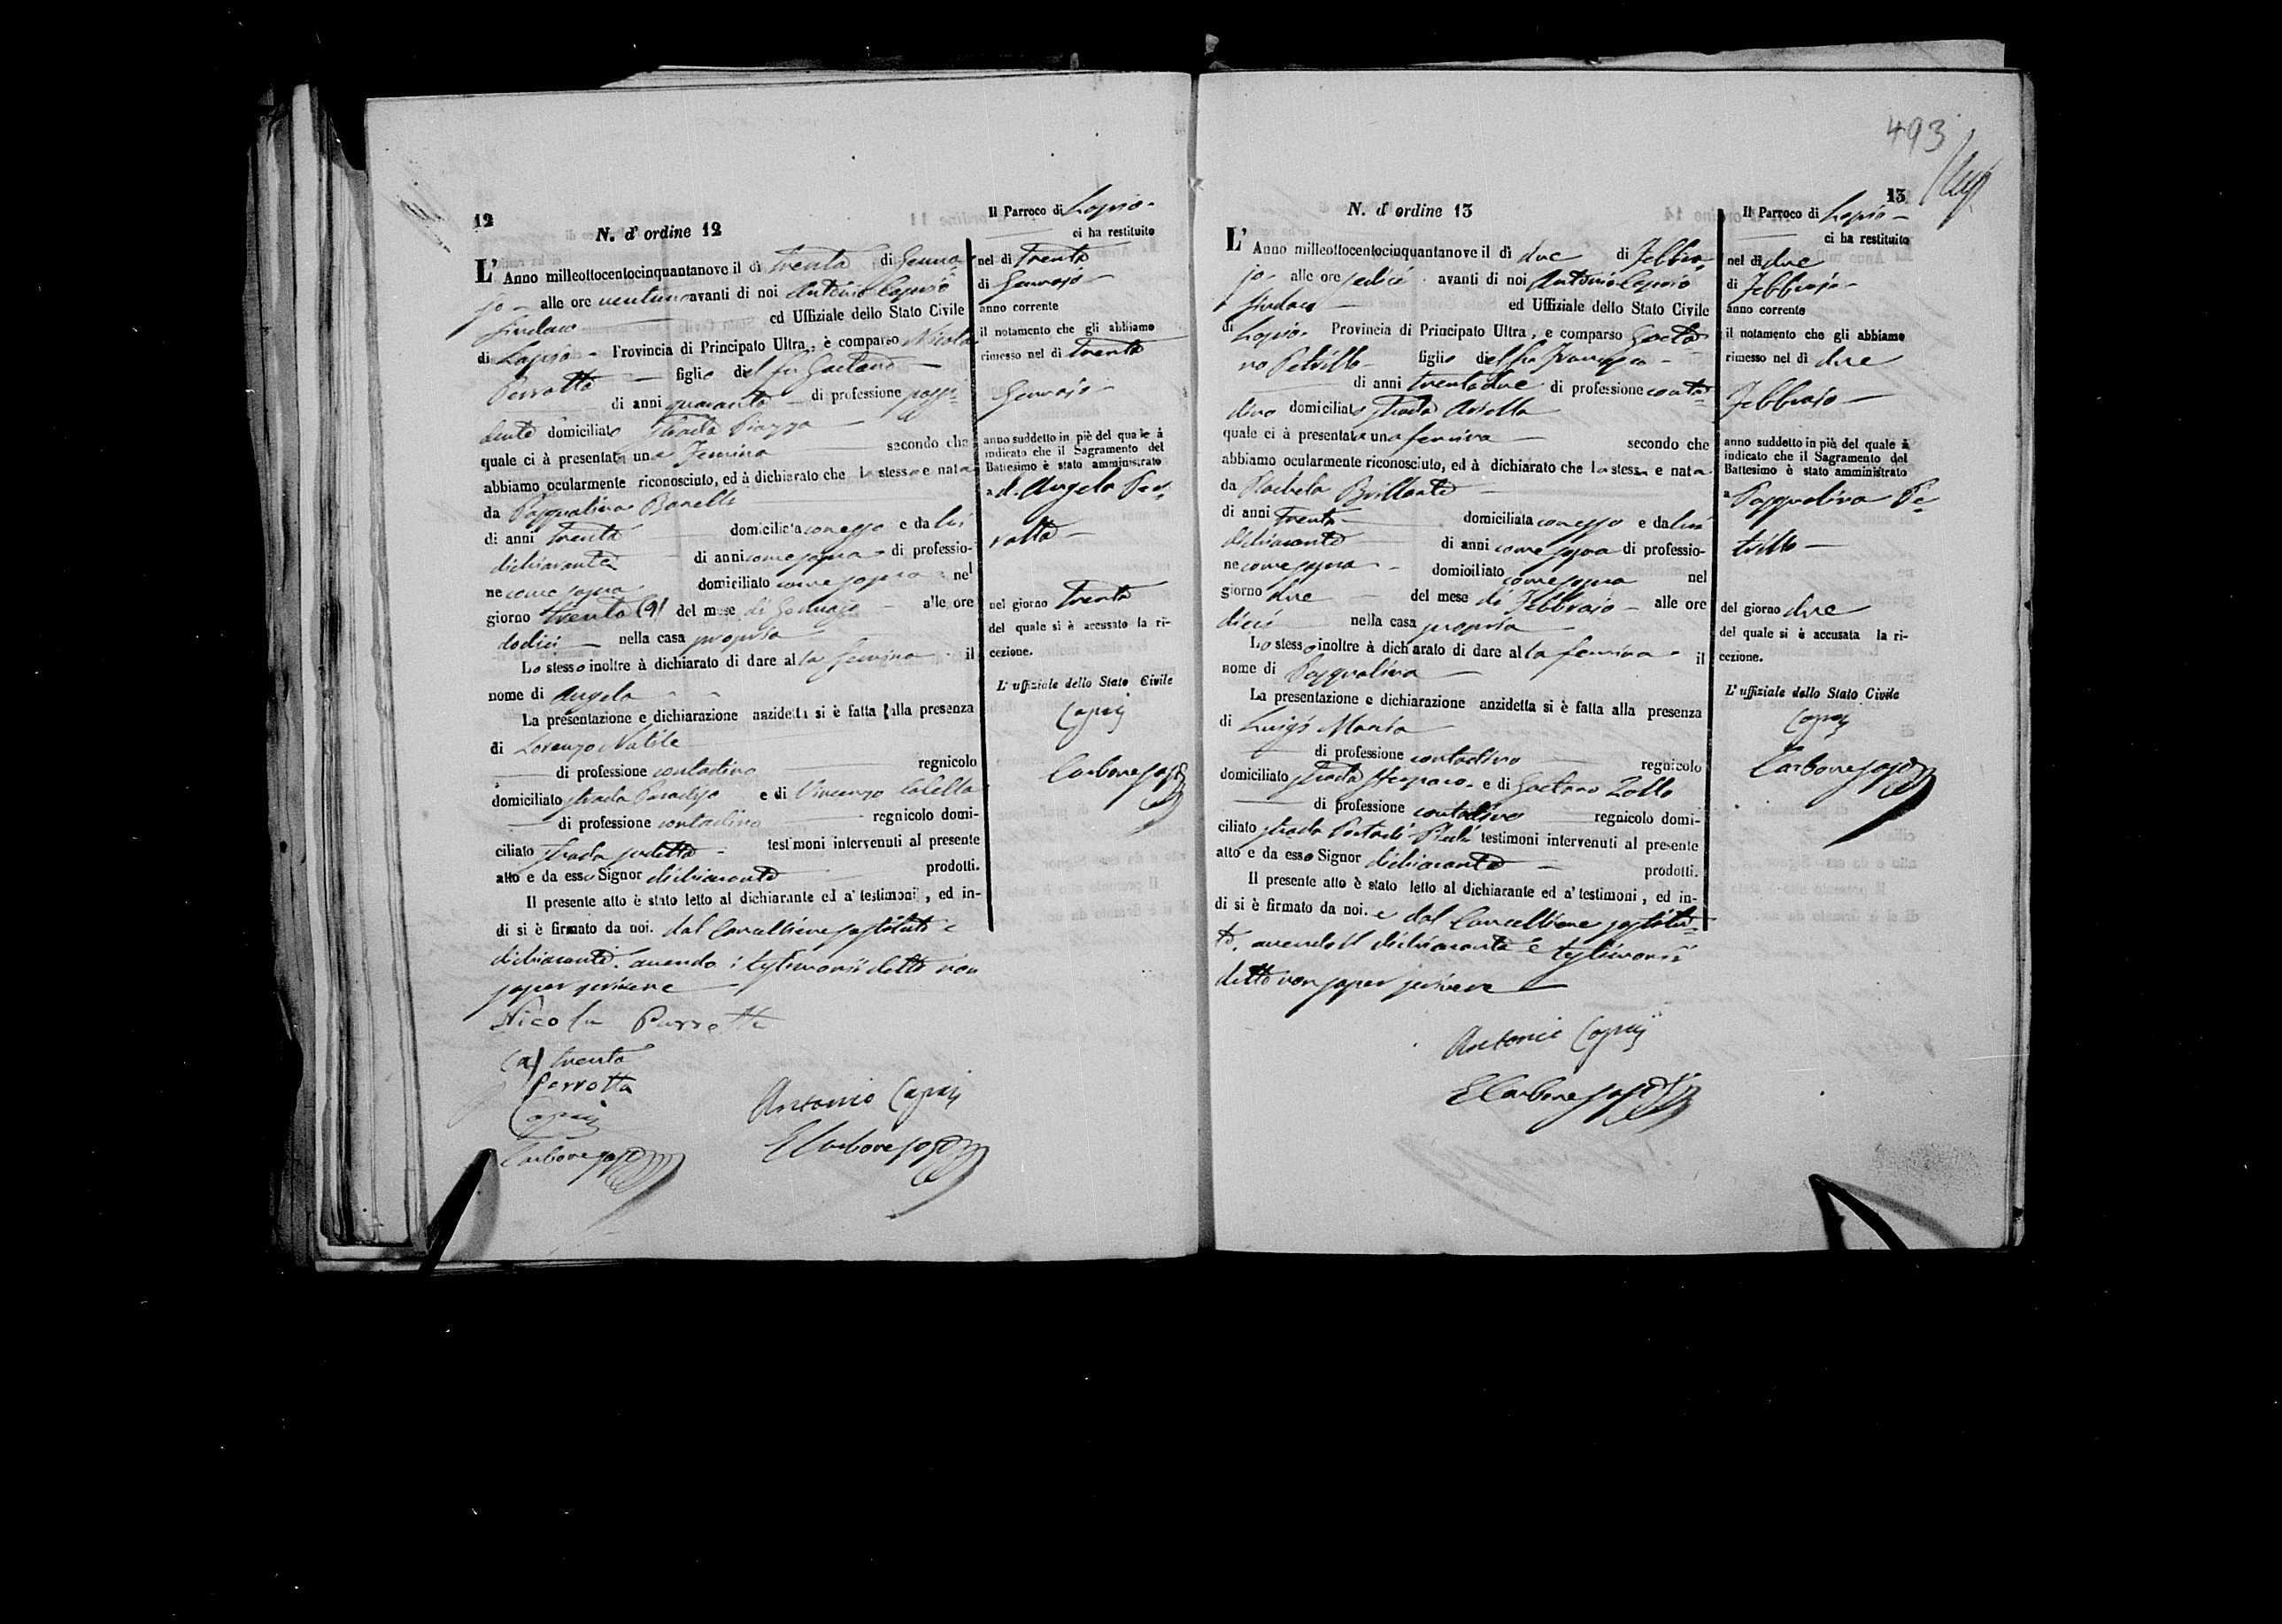 12
N. d' ordine 12
L' Anno milleottocentocinquantanove il dì trenta di Genna-
jo alle ore ventuno avanti di noi Antonio Caprio
Sindaco ed Uffiziale dello Stato Civile
di Lapio Provincia di Principato Ultra, è comparso Nicola
Perrotta figlio del fu Gaetano
di anni quaranta di professione possi-
dente domiciliato strada Piazza
quale ci à presentata una femina secondo che
abbiamo ocularmente riconosciuto, ed à dichiarato che la stessa e nata
da Pasqualina
di anni trenta domiciliata con esso e da lui
dichiarante di anni come sopra di professio-
ne come sopra domiciliato come sopra nel
giorno trenta (a) del mese di Gennajo alle ore
dodici nella casa propria
Lo stesso inoltre à dichiarato di dare alla femina il
nome di Angela
La presentazione e dichiarazione anzidetta si è fatta alla presenza
di Lorenzo Natile
di professione contadino regnicolo
domiciliato strada Paradiso e di Vincenzo
di professione contadino regnicolo domi-
ciliato strada suddetta testimoni intervenuti al presente
atto e da esso Signor dichiarante prodotti.
Il presente atto è stato letto al dichiarante ed a' testimoni, ed in-
di si è firmato da noi. dal Cancelliere sostituto e
dichiarante. avendo i testimonii detto non
saper scrivere
Nicola Perrotta
(a) trenta
Perrotta
Caprij
Carbone sost
Antonio Caprij
E Carbone sost
Il Parroco di Lapio
ci ha restituito
nel dì trenta
di Gennajo
anno corrente
il notamento che gli abbiamo
rimesso nel dì trenta
Gennajo
anno suddetto in piè del quale à
indicato che il Sagramento del
Battesimo è stato amministrato
a d. Angela Per-
rotta
nel giorno trenta
del quale si è accusato la ri-
cezione.
L' uffiziale dello Stato Civile
Caprij
Carbone sost
493
13
N. d' ordine 13
L' Anno milleottocentocinquantanove il dì due di Febbra-
jo alle ore sedici avanti di noi Antonio Caprio
Sindaco ed Uffiziale dello Stato Civile
di Lapio Provincia di Principato Ultra, e comparso Gaeta-
no Petrillo figlio del fu
di anni trentadue di professione conta-
dino domiciliato strada
quale ci à presentata una femina secondo che
abbiamo ocularmente riconosciuto, ed à dichiarato che la stessa e nata
da Rachela Brillante
di anni trenta domiciliata con esso e da lui
dichiarante di anni come sopra di professio-
ne come sopra domiciliato come sopra nel
giorno due del mese di Febbraio alle ore
dieci nella casa propria
Lo stesso inoltre à dichiarato di dare alla femina il
nome di Pasqualina
La presentazione e dichiarazione anzidetta si è fatta alla presenza
di Luigi Manta
di professione contadino regnicolo
domiciliato strada e di Gaetano Zollo
di professione contadino regnicolo domi-
ciliato strada testimoni intervenuti al presente
atto e da esso Signor dichiarante prodotti.
Il presente atto è stato letto al dichiarante ed a' testimoni, ed in-
di si è firmato da noi. e dal Cancelliere sostitu-
to. avendo il dichiarante e testimonii
detto non saper scrivere
Antonio Caprij
E Carbone sost
Il Parroco di Lapio
ci ha restituito
nel dì due
di Febbrajo
anno corrente
il notamento che gli abbiamo
rimesso nel dì due
Febbrajo
anno suddetto in piè del quale à
indicato che il Sagramento del
Battesimo è stato amministrato
a Pasqualina Pe-
trillo
del giorno due
del quale si è accusata la ri-
cezione.
L' uffiziale dello Stato Civile
Caprij
Carbone sost